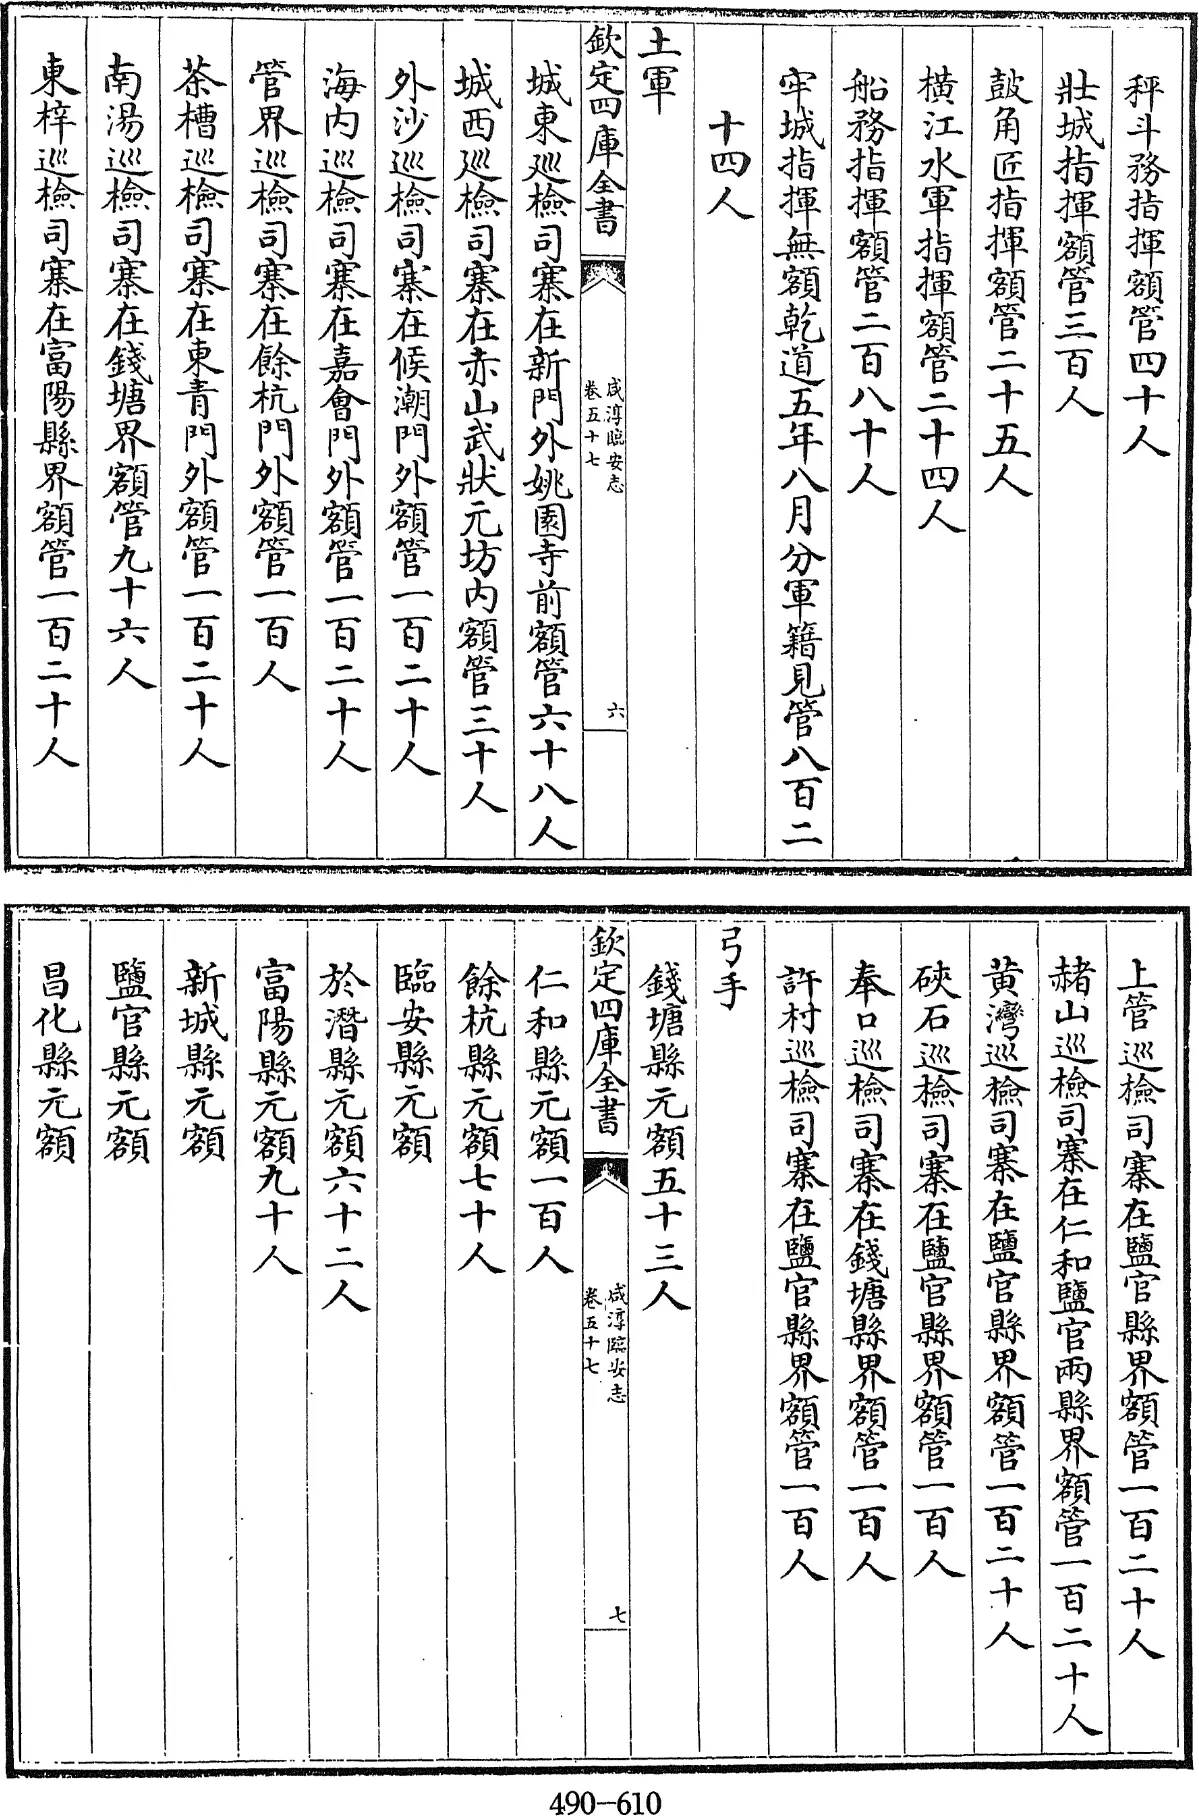 秤斗務指揮額管四十人
壯城指揮額管三百人
鼓角匠指揮額管二十五人
橫江水軍指揮額管二十四人
船務指揮額管二百八十人
牢城指揮無額乾道五年八月分軍籍見管八百二
十四人
土軍
欽定四庫全書
咸淳臨安志
卷五十七
六
城東廵檢司寨在新門外姚園寺前額管六十八人
城西廵檢司寨在赤山武狀元坊内額管三十人
外沙巡檢司寨在候潮門外額管一百二十人
海内巡檢司寨在嘉會門外額管一百二十人
管界巡檢司寨在餘杭門外額管一百人
茶槽巡檢司寨在東青門外額管一百二十人
南湯巡檢司寨在錢塘界額管九十六人
東梓巡檢司寨在富陽縣界額管一百二十人
上管巡檢司寨在鹽官縣界額管一百二十人
赭山巡檢司寨在仁和鹽官兩縣界額管一百二十人
黄灣巡檢司寨在鹽官縣界額管一百二十人
硤石巡檢司寨在鹽官縣界額管一百人
奉口巡檢司寨在錢塘縣界額管一百人
許村巡檢司寨在鹽官縣界額管一百人
弓手
錢塘縣元額五十三人
欽定四庫全書
咸淳臨安志
卷五十七
七
仁和縣元額一百人
餘杭縣元額七十人
臨安縣元額
於潛縣元額六十二人
富陽縣元額九十人
新城縣元額
鹽官縣元額
昌化縣元額
490-610